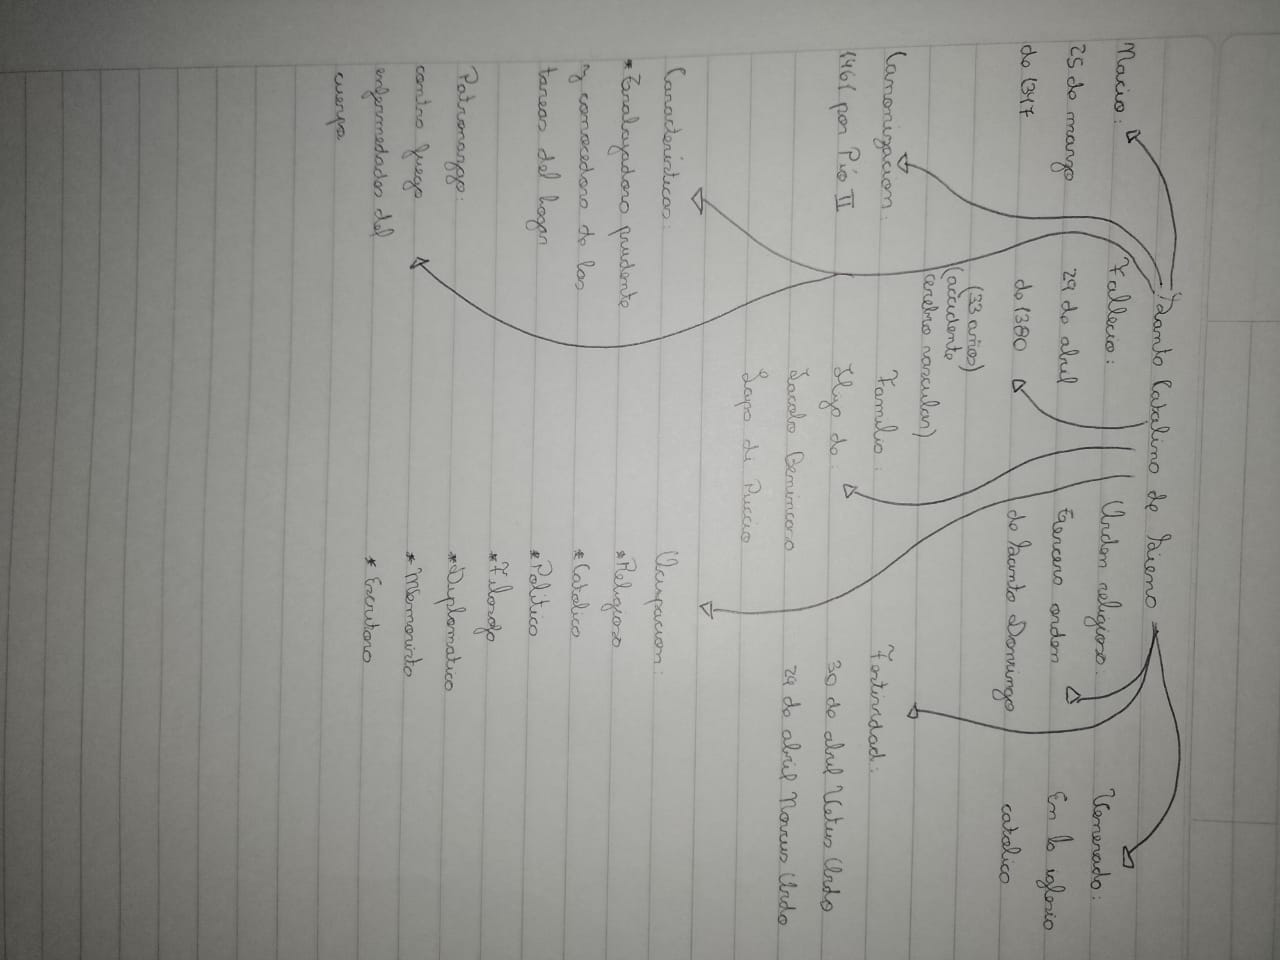 Santa Catalina de Siena
Nacio:
25 de marzo
de 1347
Fallecio:
29 de abril
de 1380
(33 años)
(accidente
cerebro vascular)
Orden religiosa:
Tercera orden
de Santo Domingo
Venerada:
En la iglesia
catolica
Canonizacion:
1461 por Pío II
Familia:
Hija de:
Jacobo Benincasa
Lapa di Puccio
Festividad:
30 de abril Vetus Ordo
29 de abril Novus Ordo
Caracteristicas:
* Trabajadora prudente
y conocedora de las
tareas del hogar
Ocupacion:
* Religiosa
* Catolica
* Politica
* Filosofa
* Diplomatica
* Memorista
* Escritora
Patronazgo:
contra fuego
enfermedades del
cuerpo